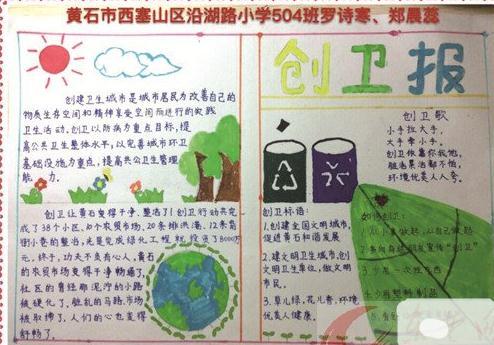 黄石市西塞山区沿湖路小学504班罗诗寒、郑晨蕊
创卫报
创建卫生城市是城市居民为改善自己的
物质生存空间和精神享受空间所进行的实践
卫生活动。创卫以防病为重点目标,提
高公共卫生整体水平,以完善城市环卫
基础设施为重点,提高公共卫生管理
能力。
创卫歌
小手拉大手,
大手牵小手。
创卫依靠你我他,
脏渣果沽都不怕。
环境优美人人夸。
创卫让黄石变得干净、整洁了!创卫行动共完
成了38个小区、8个农贸市场、20条排洪港、12条背
街小巷的整治,光是完成绿化工程就投资了8000万
元。终于,功夫不负有心人,黄石
的农贸市场变得干净畅通了,
社区的曾经那泥泞的小路
被硬化了,脏乱的马路市场
被取缔了,人们的心也变得
舒畅了。
创卫标语:
1.创建全国文明城市,
促进黄石和谐发展
2.建文明卫生城市,做文
明卫生单位,做文明市
民。
3.草儿绿,花儿香,环境
优美人健康。
如何创卫:
1.从小事做起,从自己做起。
2.多向身边朋友宣传“创卫”
3.少用一次性东西
4.少用塑料制品